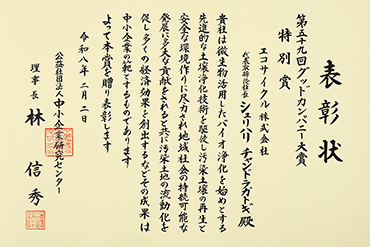 表彰状
第五十九回グッドカンパニー大賞
特別賞
エコサイクル株式会社
代表取締役社長 シュリハリ チャンドラガトギ殿
貴社は微生物活用したバイオ浄化を始めとする
先進的な土壌浄化技術を駆使し汚染土壌の再生と
安全な環境作りに尽力され地域社会の持続可能な
発展に多大な貢献をされると共に汚染土地の流動化を
促し多くの経済効果を創出するなどその成果は
中小企業の範とするものであります
よって本賞を贈り表彰します
令和八年二月二日
公益社団法人中小企業研究センター
理事長 林信秀